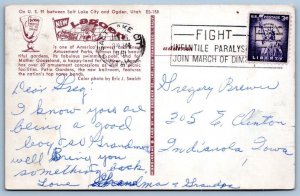 On U. S. 91 between Salt Lake City and Ogden, Utah ES-158
NEW
LAGOON
is one of America's
Amusement Parks, famous for its
Mother Gooseland, a happyland for
has over 60 amusement concessions as well as
facilities. Patio Gardens, the new ballroom, features
the nation's top name bands.
Color photo by Eric J. Seaich
FIGHT
INFANTILE PARALYSIS
JOIN MARCH OF DIMES
3¢
LIBERTY
Dear Greg
I know you are
being a good
boy and Grandma
will bring you
something back
Love Grandma & Grandpa
Gregory Brewer
305 E. Clinton
Indianola Iowa